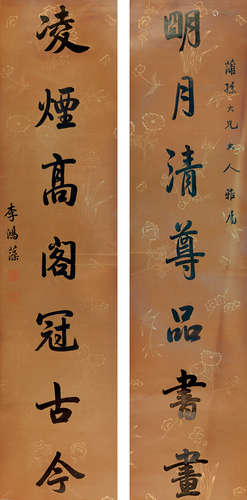 蘭孫大兄大人雅屬
明月清尊品書畫
凌煙高閣冠古今
李鴻藻